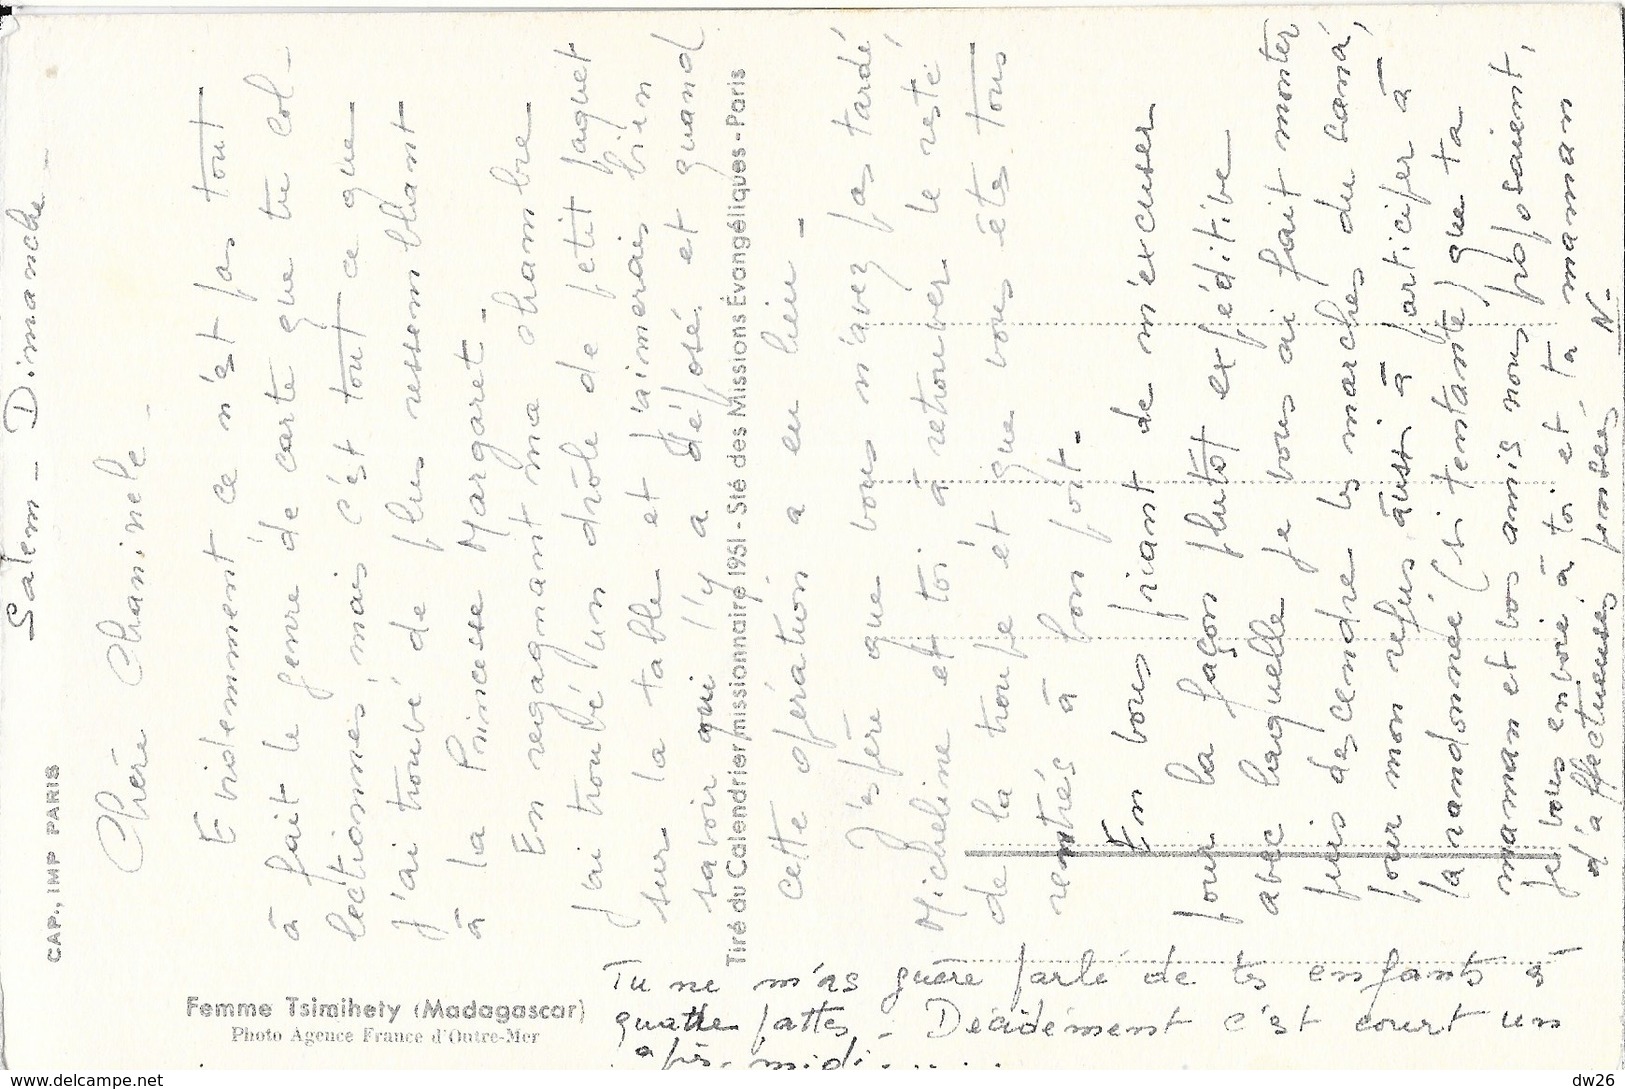 Salem - Dimanche -
Chère Chaminele -
Evidemment ce n'est pas tout
à fait le genre de carte que tu col-
lectionnes, mais c'est tout ce que
j'ai trouvé de plus ressemblant
à la Princesse Margaret -
En regagnant ma chambre
j'ai trouvé un drôle de petit paquet
sur la table et j'aimerais bien
savoir qui l'y a déposé et quand
cette opération a eu lieu -
J'espère que vous n'avez pas tardé,
Micheline et toi à retrouver le reste
de la troupe et que vous êtes tous
rentrés à bon port -
En vous priant de m'excuser
pour la façon plutôt expéditive
avec laquelle je vous ai fait monter
puis descendre les marches du sana,
pour mon refus aussi à participer à
la randonnée (si tentante) que ta
maman et vos amis nous proposaient,
je vous envoie à toi et ta maman
d'affectueuses pensées N-
Tu ne m'as guère parlé de tes enfants à
quatre pattes - Décidément c'est court un
après-midi . . . . .
CAP., IMP PARIS
Tiré du Calendrier missionnaire 1951 - Sté des Missions Évangéliques - Paris
Femme Tsimihety (Madagascar)
Photo Agence France d'Outre-Mer
https://www.delcampe.net
dw26